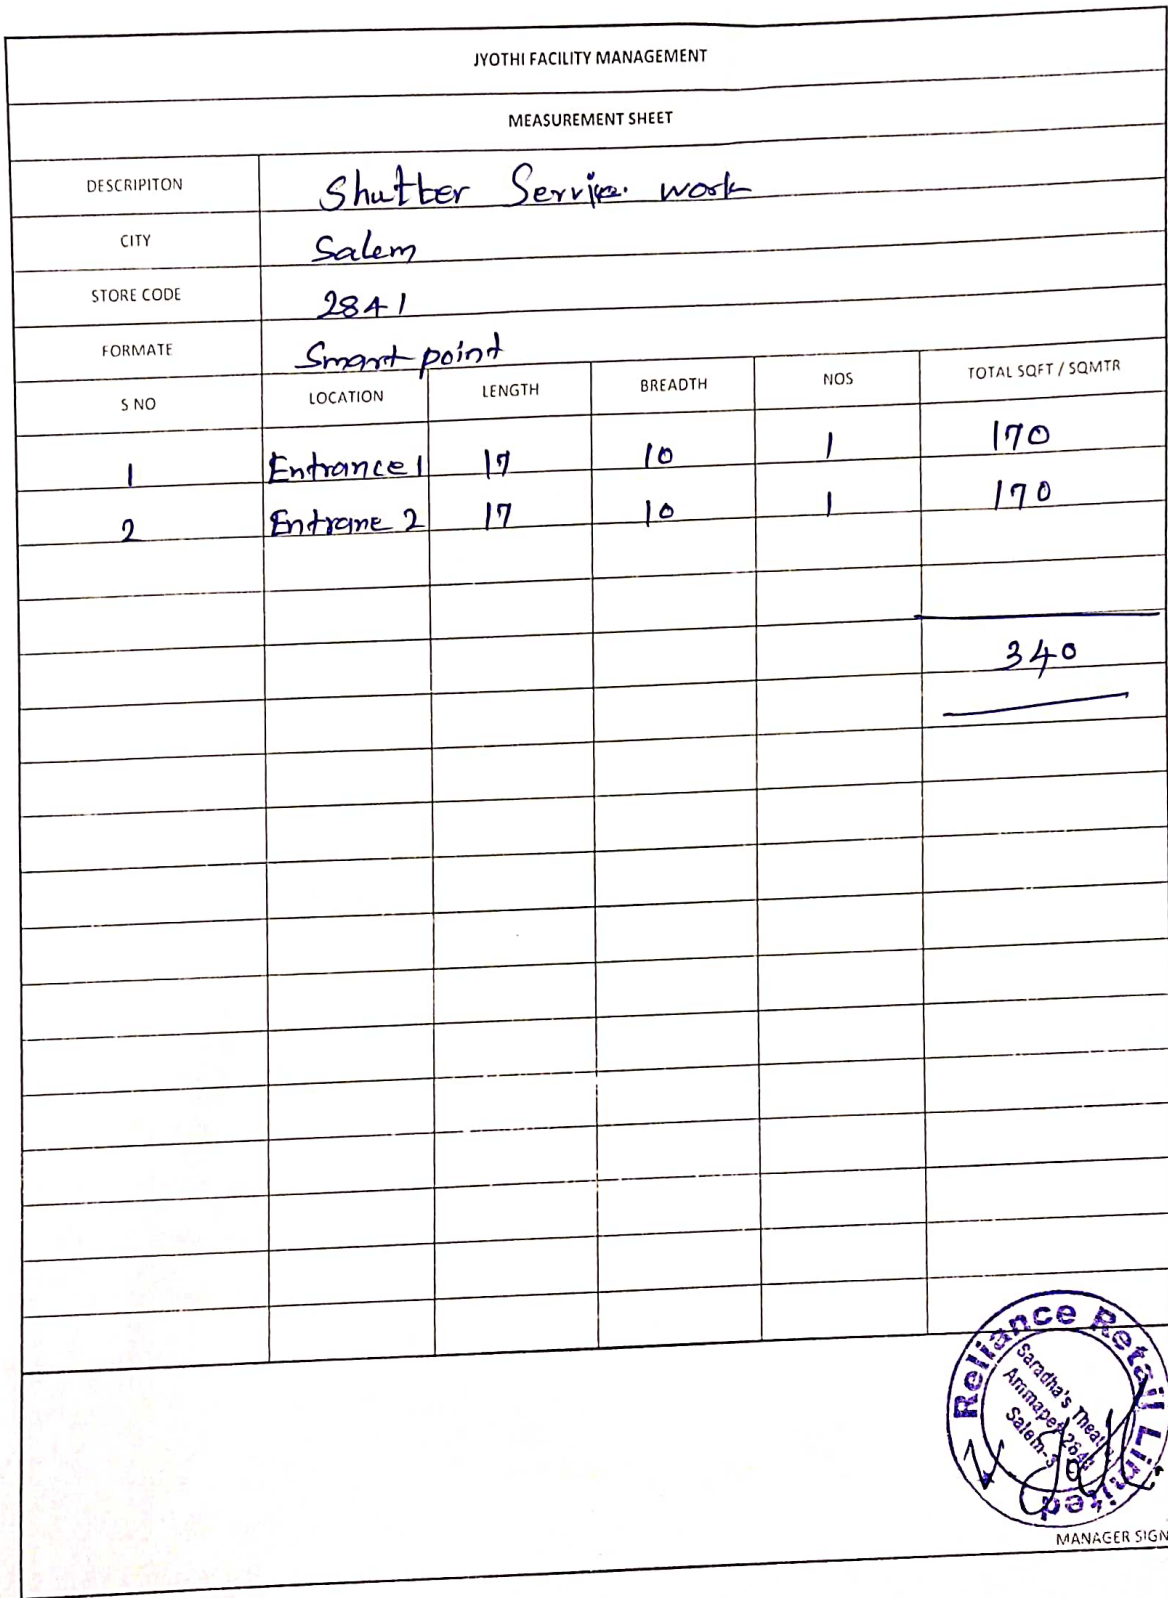 JYOTHI FACILITY MANAGEMENT
MEASUREMENT SHEET
DESCRIPITON Shutter Service work
CITY Salem
STORE CODE 2841
FORMATE Smart point
S NO LOCATION LENGTH BREADTH NOS TOTAL SQFT / SQMTR
1 Entrance 1 17 10 1 170
2 Entrane 2 17 10 1 170
340
Reliance Retail Limited
Saradha's
Salem-
MANAGER SIGN